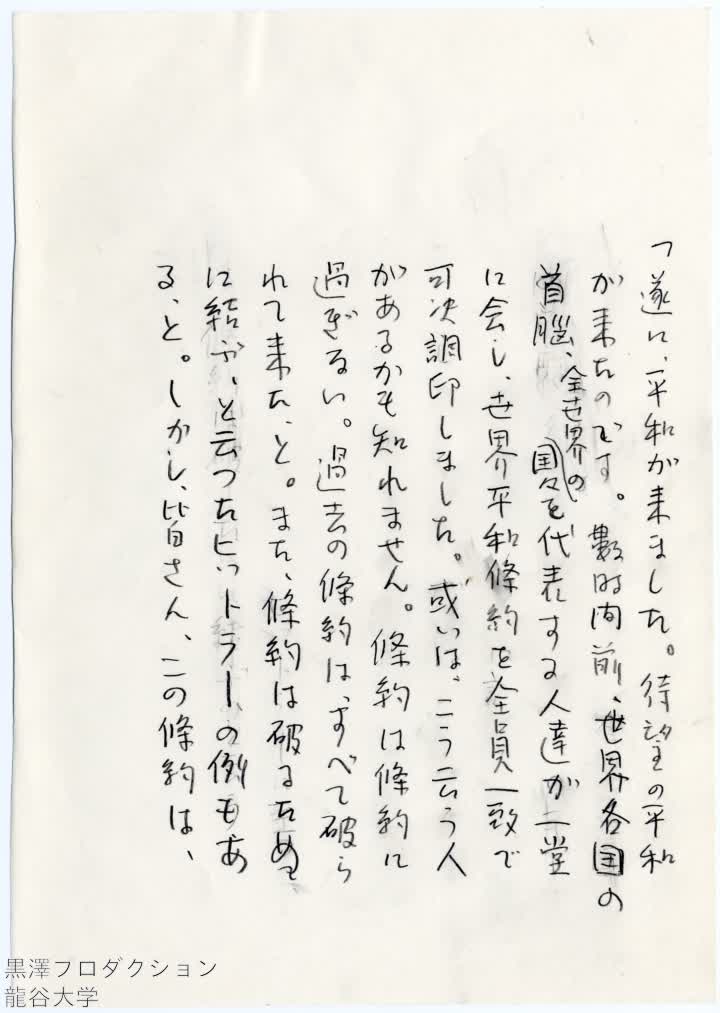 「遂に、平和が来ました。待望の平和
が来たのです。數時间前、世界各国の
首腦、全世界の国々を代表する人達が一堂
に会し、世界平和條約を全員一致で
可决調印しました。或いは、こう云う人
があるかも知れません。條約は條約に
過ぎない。過去の條約は、すべて破ら
れて来た、と。また、條約は破るために
に結ぶ、と云ったヒットラーの例もあ
る、と。しかし、皆さん、この條約は、
黒澤プロダクション
龍谷大学